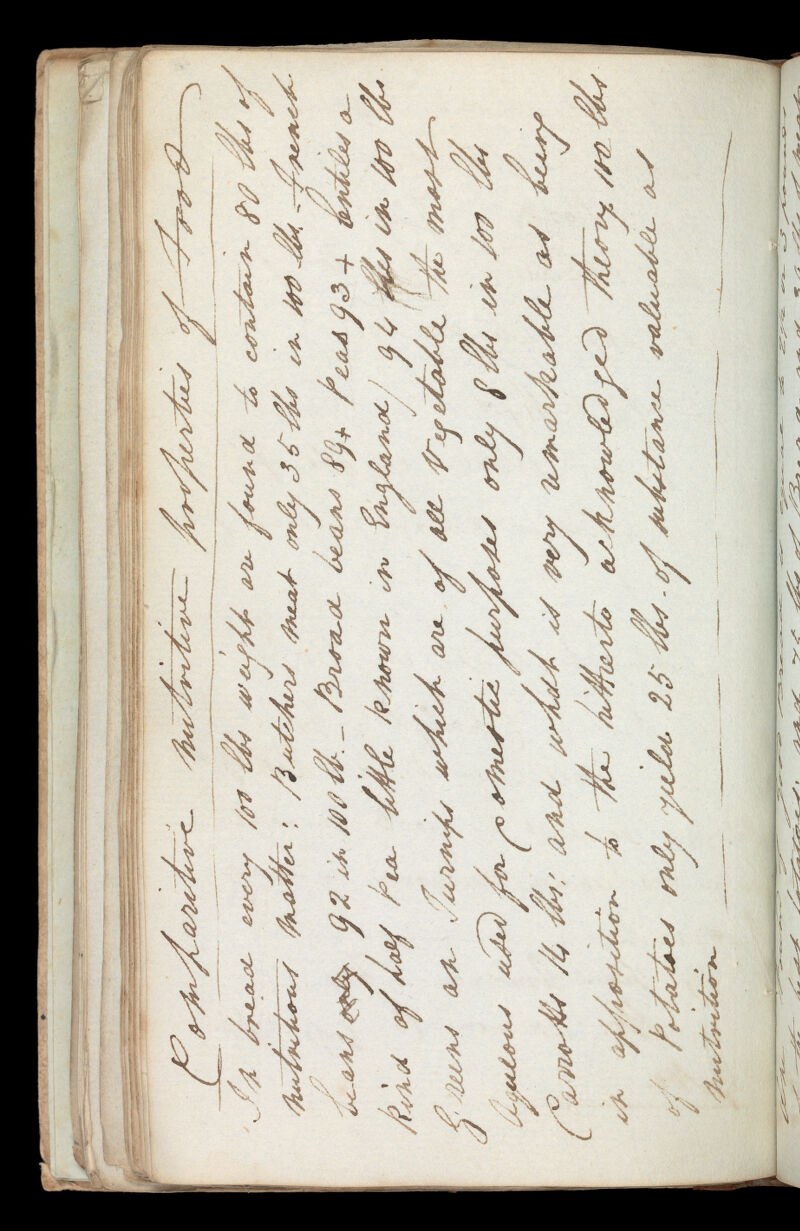 Comparitive nutritive properties of Food
In bread every 100 lbs weight are found to contain 80 lbs of
nutritious matter: Butchers meat only 35 lbs in 100 lbs – French
beans only 92 in 100 lb. – Broad beans 89+ Peas 93+ Lentiles a
kind of half Pea little known in England) 94 lbs in 100 lbs
Greens an Turnips which are of all Vegetable the most
Aqueous used for Domestic purposes only 8 lbs in 100 lbs
Carrots 14 lbs: and what is very remarkable as being
in opposition to the hitherto acknowledged theory 100 lbs
of Potatoes only yield 25 lbs. of substance valuable as
nutrition